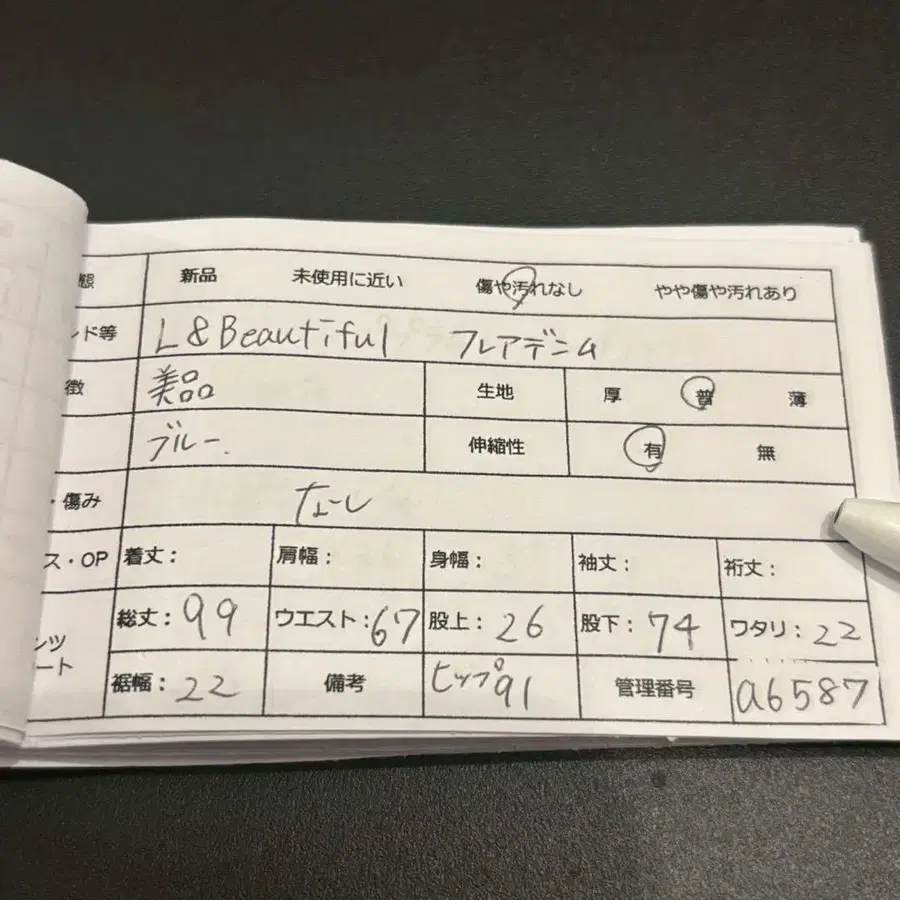 態 新品 未使用に近い 傷や汚れなし やや傷や汚れあり
ンド等 L&Beautiful フレアデニム
徴 美品 生地 厚 普 薄
ブルー. 伸縮性 有 無
・傷み なし
ス・OP 着丈: 肩幅: 身幅: 袖丈: 裄丈:
ンツ
ート
総丈: 99 ウエスト: 67 股上: 26 股下: 74 ワタリ: 22
裾幅: 22 備考 ヒップ91 管理番号 a6587